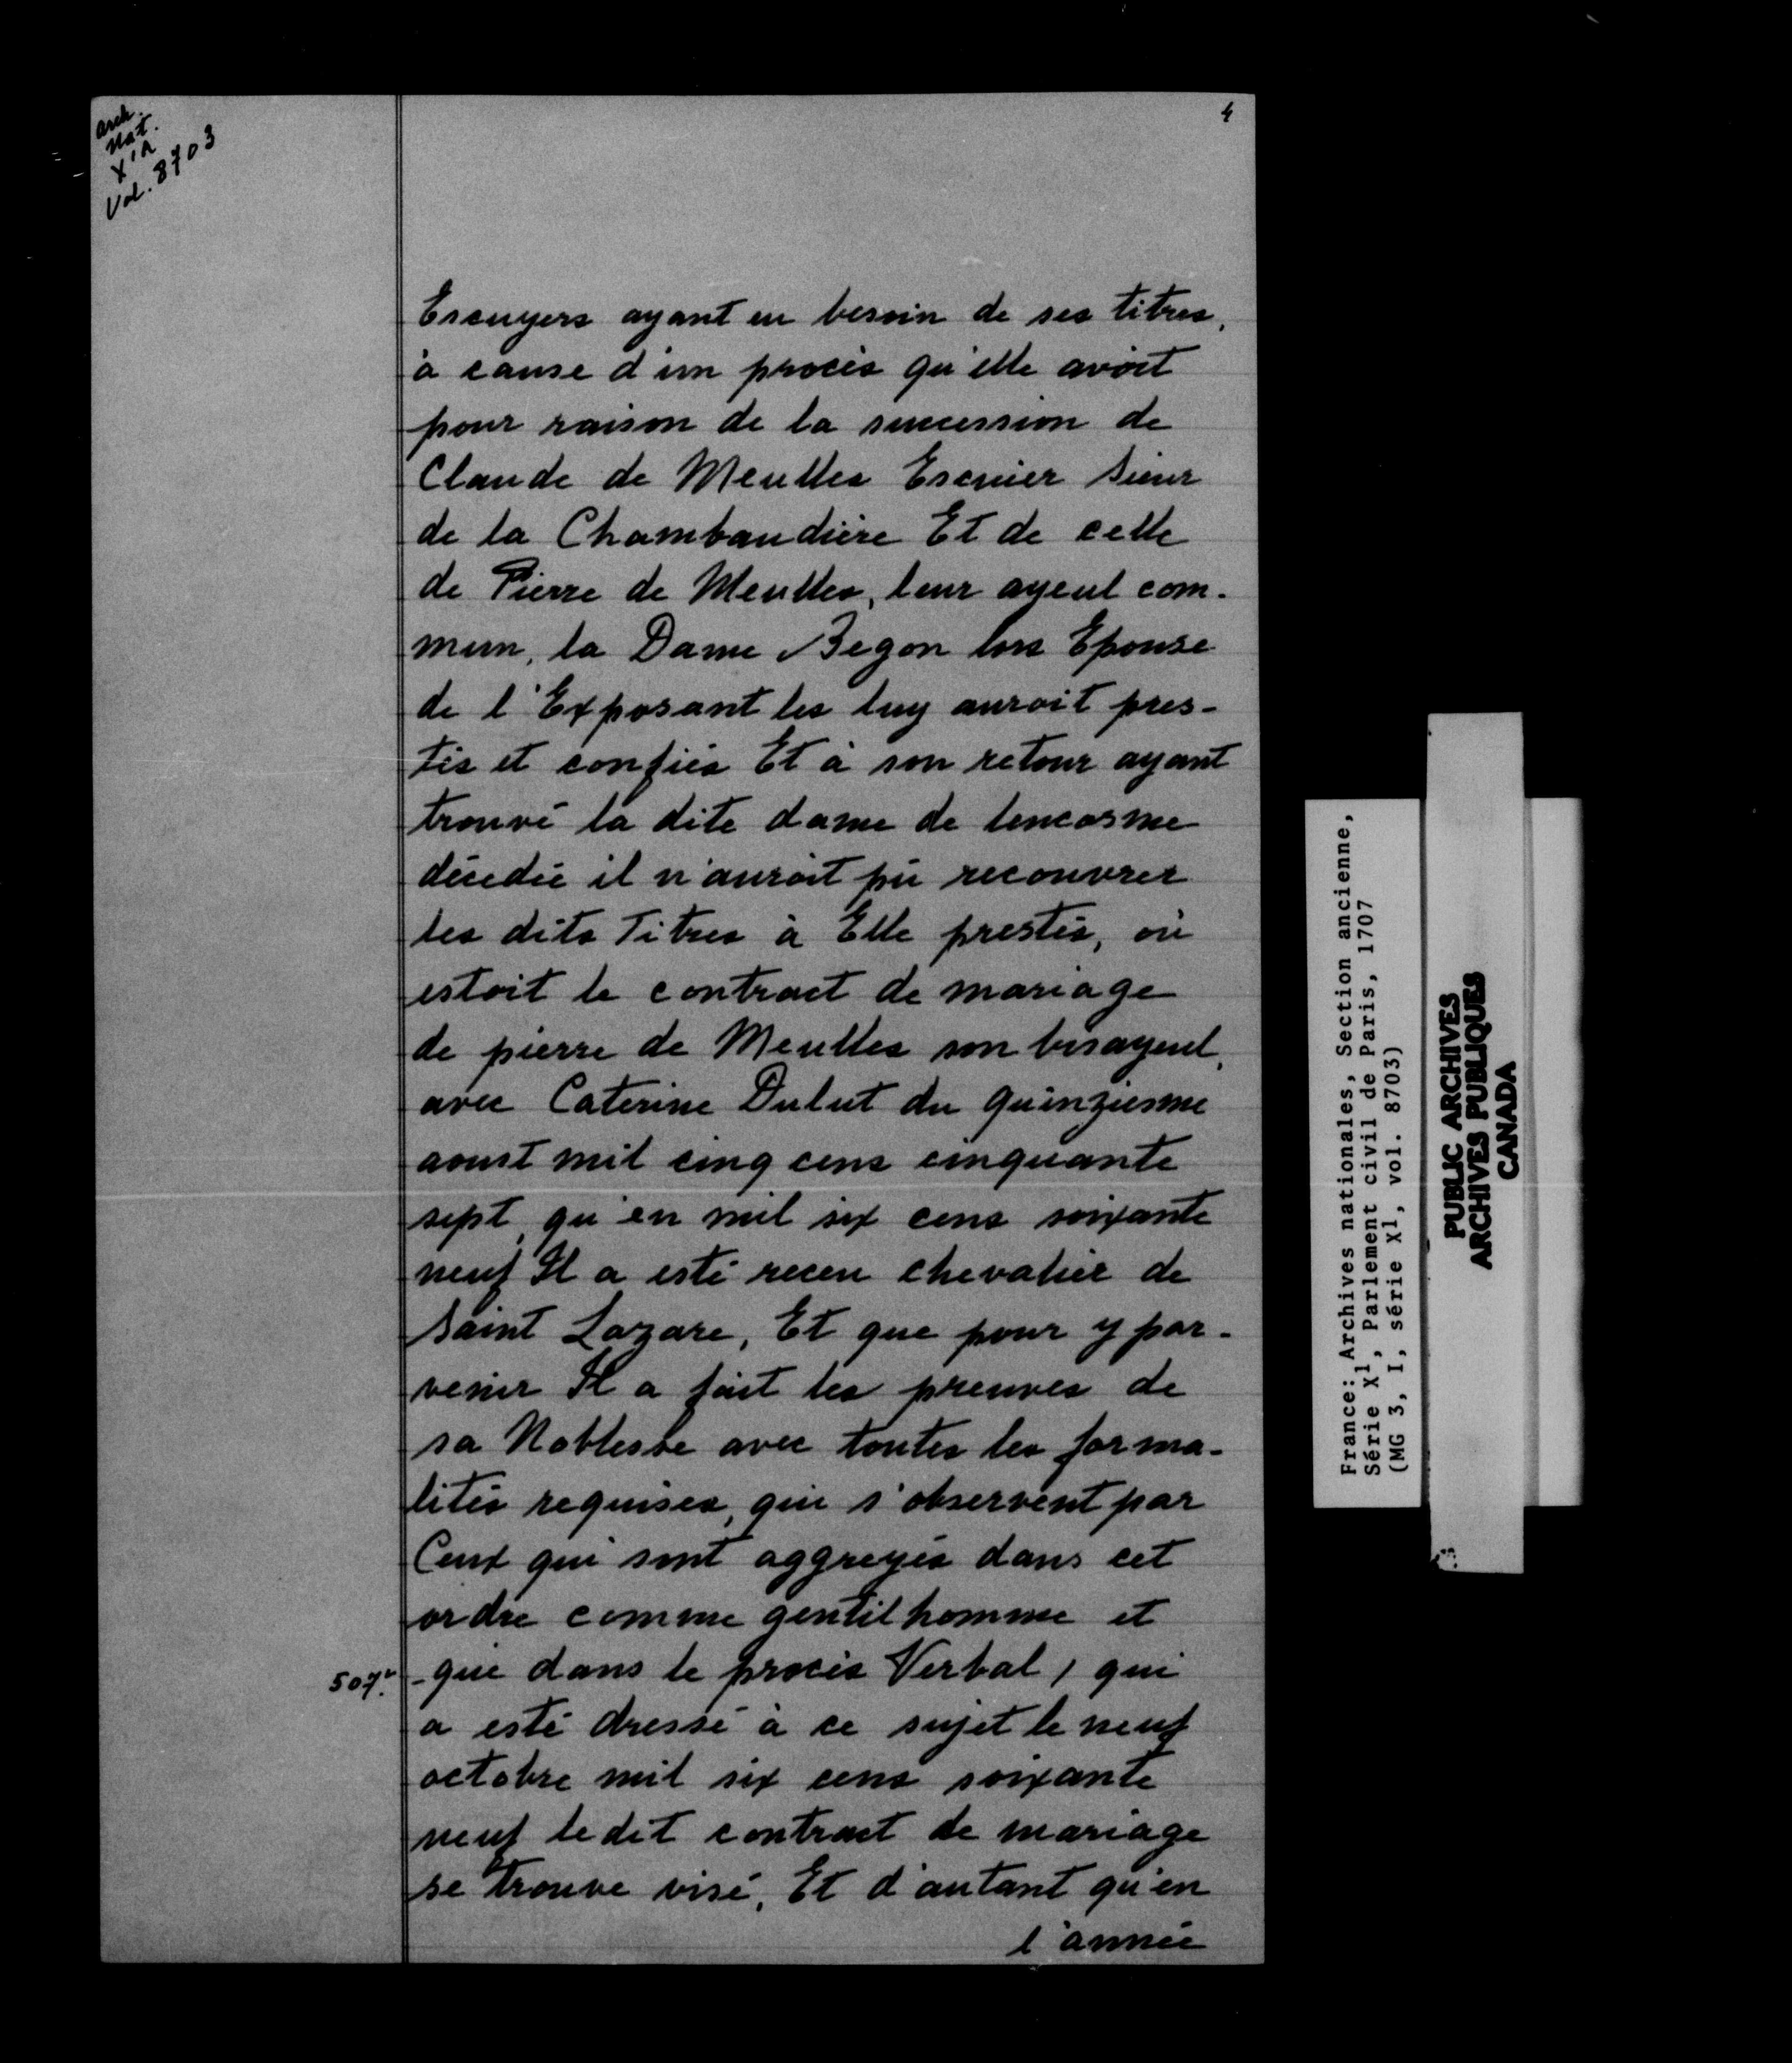 arch.
Nat.
X1A
Vol. 8703
4
Escuyers ayant eu besoin de ses titres,
à cause d'un procès qu'elle avoit
pour raison de la succession de
Claude de Meulles Escuier sieur
de la Chambaudière Et de celle
de Pierre de Meulles, leur ayeul com-
mun, la Dame Begon lors Epouse
de l'Exposant les luy auroit pres-
tés et confiés Et à son retour ayant
trouvé la dite dame de lencosme
décédée il n'auroit pû recouvrer
les dits Titres à Elle prestés, où
estoit le contract de mariage
de pierre de Meulles son bisayeul,
avec Caterine Dulut du quinziesme
aoust mil cinq cens cinquante
sept, qu'en mil six cens soixante
neuf Il a esté receu chevalier de
Saint Lazare, Et que pour y par-
venir Il a fait les preuves de
sa Noblesse avec toutes les forma-
lités requises, qui s'observent par
Ceux qui sont aggregés dans cet
ordre comme gentilhomme et
507.v
-que dans le procès Verbal, qui
a esté dressé à ce sujet le neuf
octobre mil six cens soixante
neuf ledit contract de mariage
se trouve visé, Et d'autant qu'en
l'année
France: Archives nationales, Section ancienne,
Série X1, Parlement civil de Paris, 1707
(MG 3, I, série X1, vol. 8703)
PUBLIC ARCHIVES
ARCHIVES PUBLIQUES
CANADA